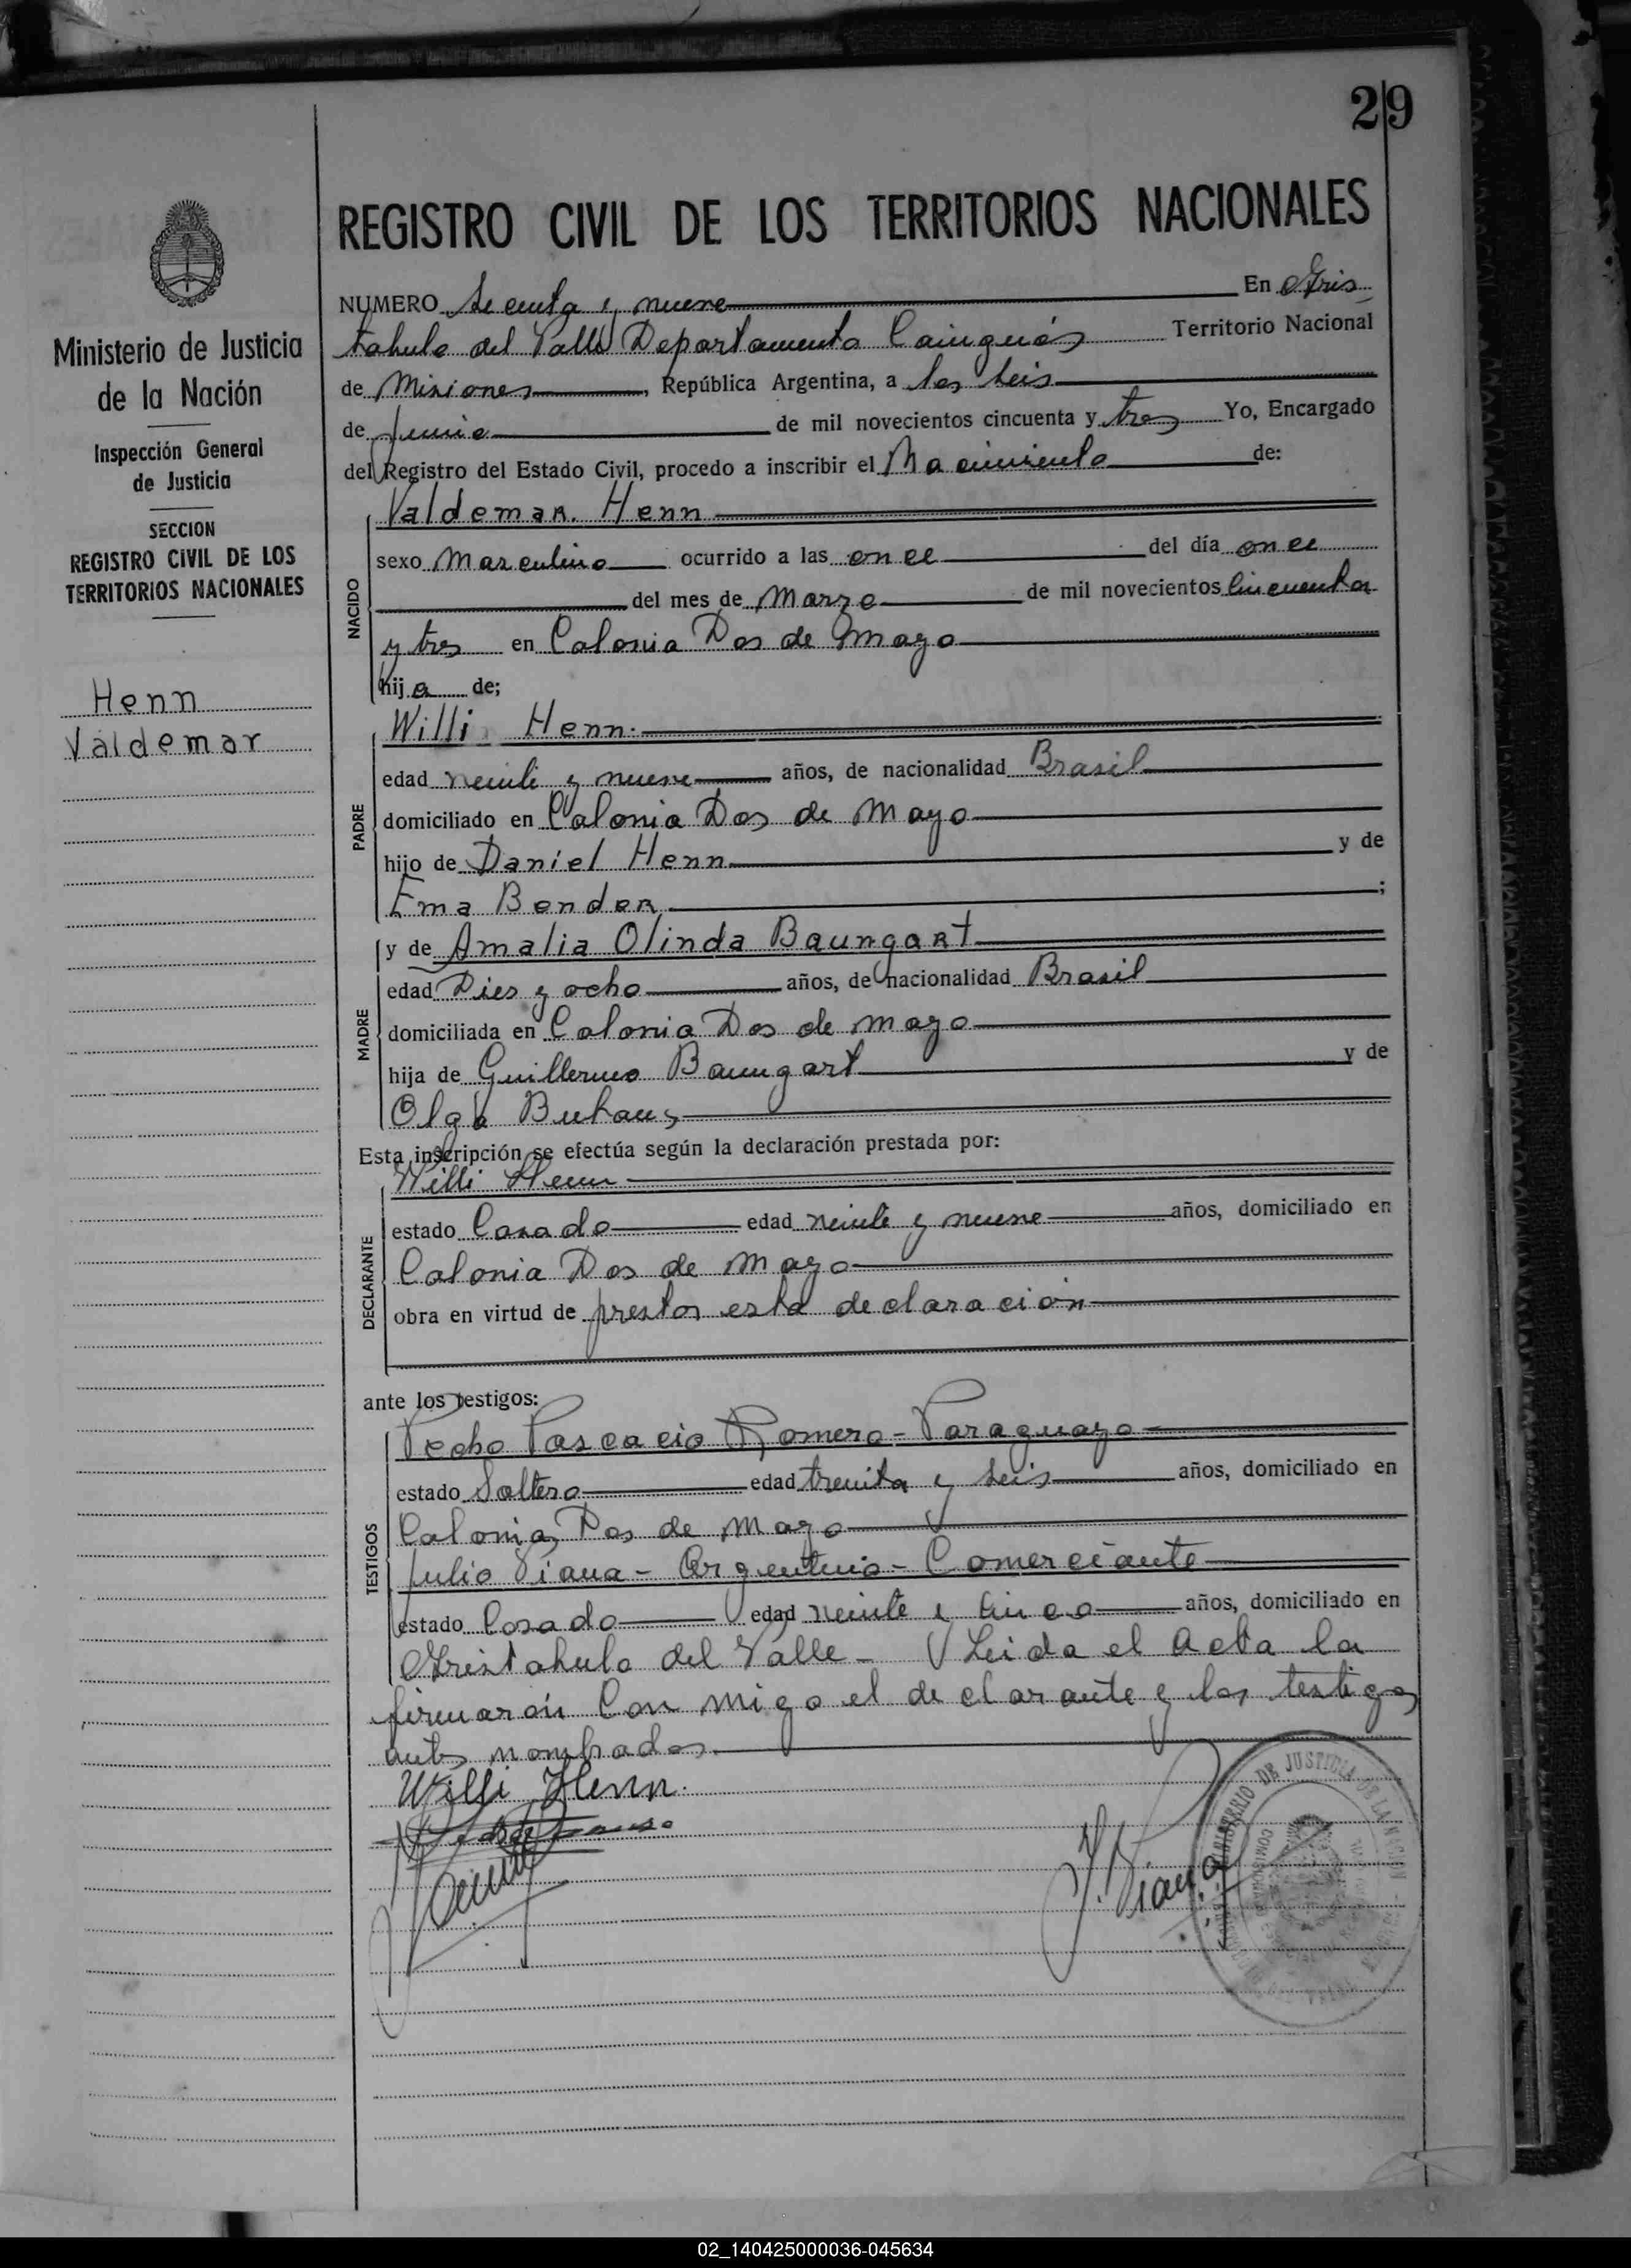 29
REGISTRO CIVIL DE LOS TERRITORIOS NACIONALES
Ministerio de Justicia
de la Nación
Inspección General
de Justicia
SECCION
REGISTRO CIVIL DE LOS
TERRITORIOS NACIONALES
Henn
Valdemar
NUMERO y nueve En Aris
tobulo del Valle Departamento Cainguás Territorio Nacional
de Misiones, República Argentina, a los seis
de junio de mil novecientos cincuenta y tres Yo, Encargado
del Registro del Estado Civil, procedo a inscribir el Nacimiento de:
NACIDO
Valdemar. Henn
sexo Masculino ocurrido a las once del día once
del mes de Marzo de mil novecientos cincuenta
y tres en Colonia Dos de Mayo
hijo de;
PADRE
Willi Henn.
edad veinte y nueve años, de nacionalidad Brasil
domiciliado en Colonia Dos de Mayo
hijo de Daniel Henn y de
Ema Bender;
MADRE
y de Amalia Olinda Baungart
edad Dies y ocho años, de nacionalidad Brasil
domiciliada en Colonia Dos de Mayo
hija de Guillermo Baungart y de
Olga
Esta inscripción se efectúa según la declaración prestada por:
DECLARANTE
Willi Henn
estado Casado edad veinte y nueve años, domiciliado en
Colonia Dos de Mayo
obra en virtud de prestar esta declaración
ante los testigos:
TESTIGOS
Pedro Pascacio Romero - Paraguayo
estado Soltero edad treinta y seis años, domiciliado en
Colonia Dos de Mayo
Julio Piana - Argentino - Comerciante
estado Casado edad veinte y cinco años, domiciliado en
Aristobulo del Valle - Leida el Acta la
firmarón con migo el declarante y los testigos
antes nombrados.
Willi Henn.
J. Piana
MINISTERIO DE JUSTICIA DE LA NACION
02_140425000036-045634